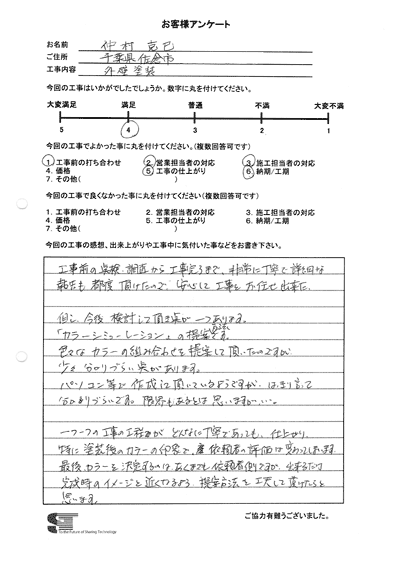 お客様アンケート
お名前 仲村 克己
ご住所 千葉県佐倉市
工事内容 外壁塗装
今回の工事はいかがでしたでしょうか。数字に丸を付けてください。
大変満足 満足 普通 不満 大変不満
5 4 3 2 1
今回の工事でよかった事に丸を付けてください。(複数回答可です)
1. 工事前の打ち合わせ 2. 営業担当者の対応 3. 施工担当者の対応
4. 価格 5. 工事の仕上がり 6. 納期/工期
7. その他( )
今回の工事で良くなかった事に丸を付けてください(複数回答可です)
1. 工事前の打ち合わせ 2. 営業担当者の対応 3. 施工担当者の対応
4. 価格 5. 工事の仕上がり 6. 納期/工期
7. その他( )
今回の工事の感想、出来上がりや工事中に気付いた事などをお書き下さい。
工事前の点検、調査から工事完了まで、非常に丁寧で詳細な
報告も都度頂けたので 安心して工事を お任せ出来た。
但し、今後 検討して頂き点が一つあります。
「カラーシミュレーション」の提案方法です。
色々なカラーの組み合わせを提案して頂いたのですが
少々分かりづらい点があります。
パソコン等で作成して頂いているようですが、はっきり言って
分かりづらいです。限界もあるとは思いますが…。
一つ一つの工事の工程がどんなに丁寧であっても、仕上がり、
特に塗装後のカラーの印象で、依頼者の評価は変わってしまいます。
最後、カラーを決定するのはあくまでも依頼者側ですが、出来るだけ
完成時のイメージと近くなるよう、提案方法を工夫して頂けたらと
思います。
to the Future of Sharing Technology
ご協力有難うございました。